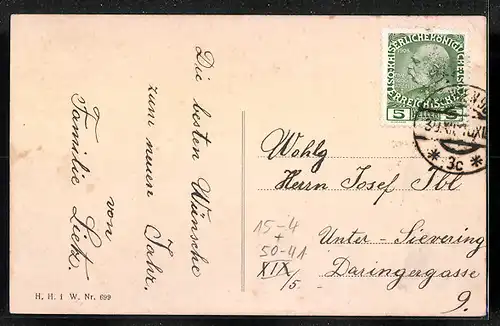 Die besten Wünsche
zum neuen Jahr.
von
Familie Lietz.
H. H. i W. Nr. 699
KAISERLICHE KÖNIGLICHE
ÖSTERREICHISCHE
5
3c
Wohlg
Herrn Josef Ibl
Unter - Sievering
Daringergasse
9.
15-4
+
50-41
XIX/5